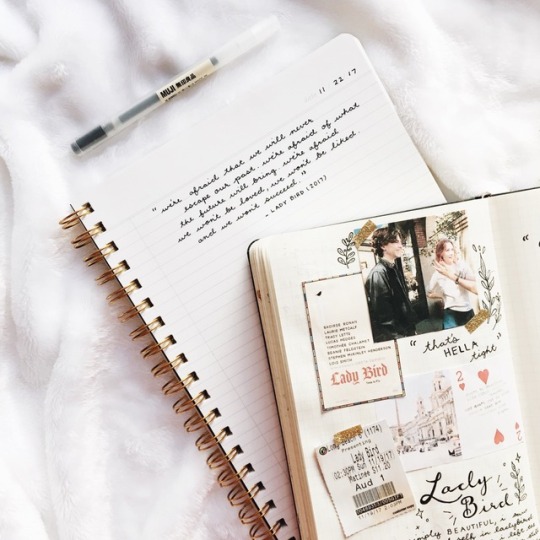 MUJ 無印良品
11 22 17
"we're afraid that we will never
escape our past. we're afraid of what
the future will bring. we're afraid
we won't be loved, we won't be liked.
and we won't succeed."
- LADY BIRD (2017)
SAOIRSE RONAN
LAURIE METCALF
TRACY LETTS
LUCAS HEDGES
TIMOTHÉE CHALAMET
BEANIE FELDSTEIN
STEPHEN MCKINLEY HENDERSON
LOIS SMITH
Lady Bird
"that's
HELLA
tight"
2
Lady Bird (1174)
Presenting
Lady Bird
02:30PM Sun 11/19/17
Matinee $11.20
Aud 1
Lady
Bird
simply BEAUTIFUL, i